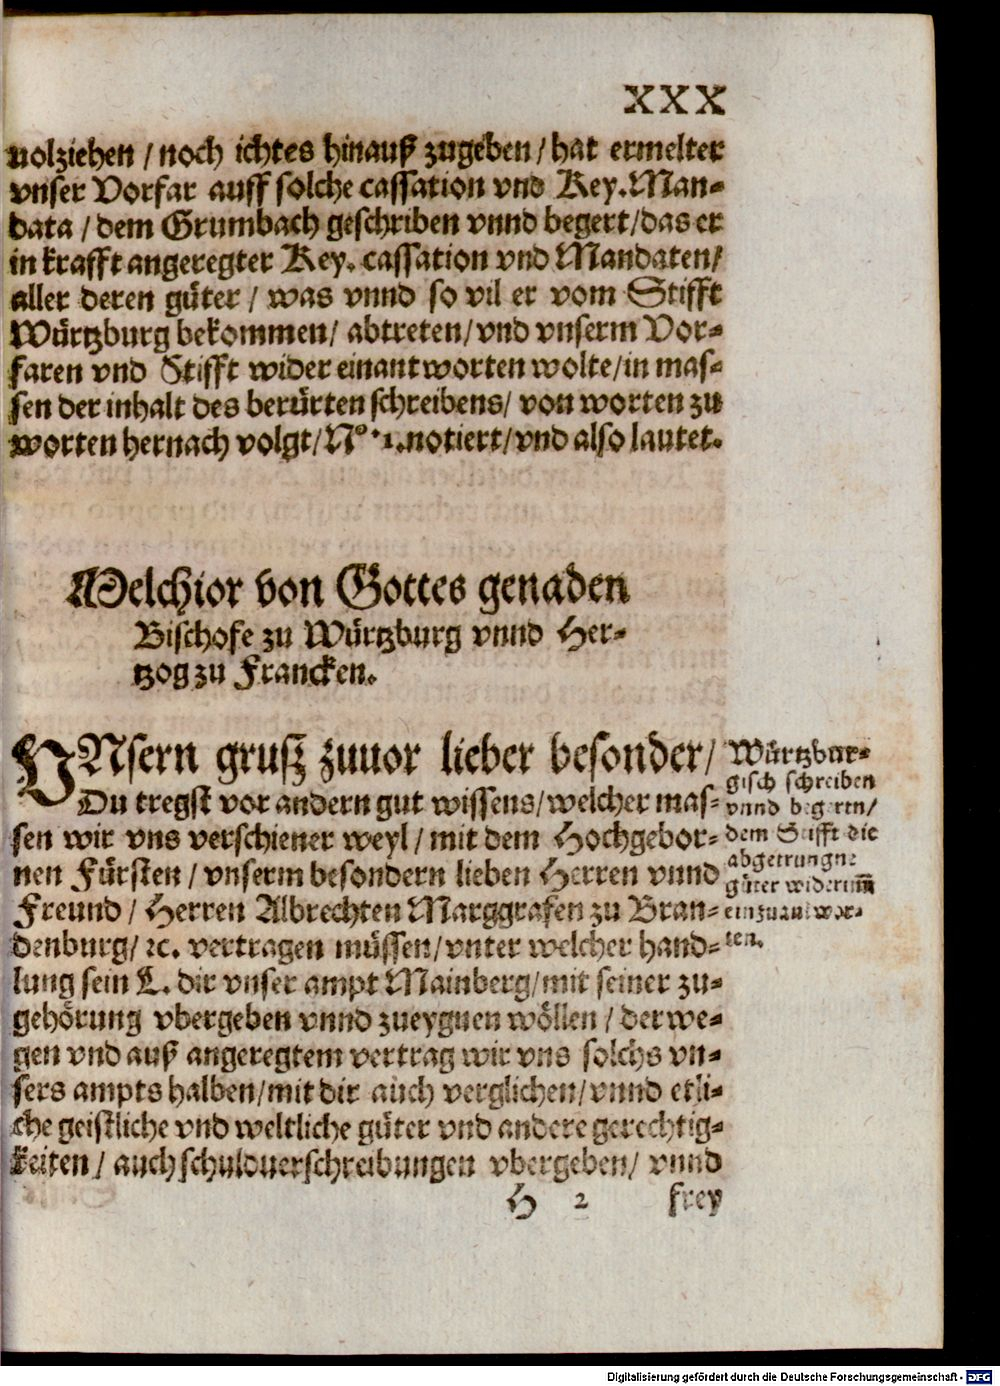 XXX
uolziehen / noch ichtes hinauß zugeben / hat ermelter
vnser Vorfar auff solche cassation vnd Key. Man-
data / dem Grumbach geschriben vnnd begert / das er
in krafft angeregter Key. cassation vnd Mandaten /
aller deren güter / was vnnd so vil er vom Stifft
Würtzburg bekommen / abtreten / vnd vnserm Vor-
faren vnd Stifft wider einantworten wolte / in mas-
sen der inhalt des berürten schreibens / von worten zu
worten hernach volgt / N° 1. notiert / vnd also lautet.
Melchior von Gottes genaden
Bischofe zu Würtzburg vnnd Her-
tzog zu Francken.
VNsern grusz zuuor lieber besonder /
Du tregst vor andern gut wissens / welcher mas-
sen wir vns verschiener weyl / mit dem Hochgebor-
nen Fürsten / vnserm besondern lieben Herren vnnd
Freund / Herren Albrechten Marggrafen zu Bran-
denburg / ꝛc. vertragen müssen / vnter welcher hand-
lung sein L. dir vnser ampt Mainberg / mit seiner zu-
gehörung vbergeben vnnd zueygnen wöllen / derwe-
gen vnd auß angeregtem vertrag wir vns solchs vn-
sers ampts halben / mit dir auch verglichen / vnnd etli-
che geistliche vnd weltliche güter vnd andere gerechtig-
keiten / auch schuldverschreibungen vbergeben / vnnd
H 2 frey
Würtzbur-
gisch schreiben
vnnd begeren /
dem Stifft die
abgetrungne
güter widerum̃
einzuantwor-
ten.
Digitalisierung gefördert durch die Deutsche Forschungsgemeinschaft - DFG